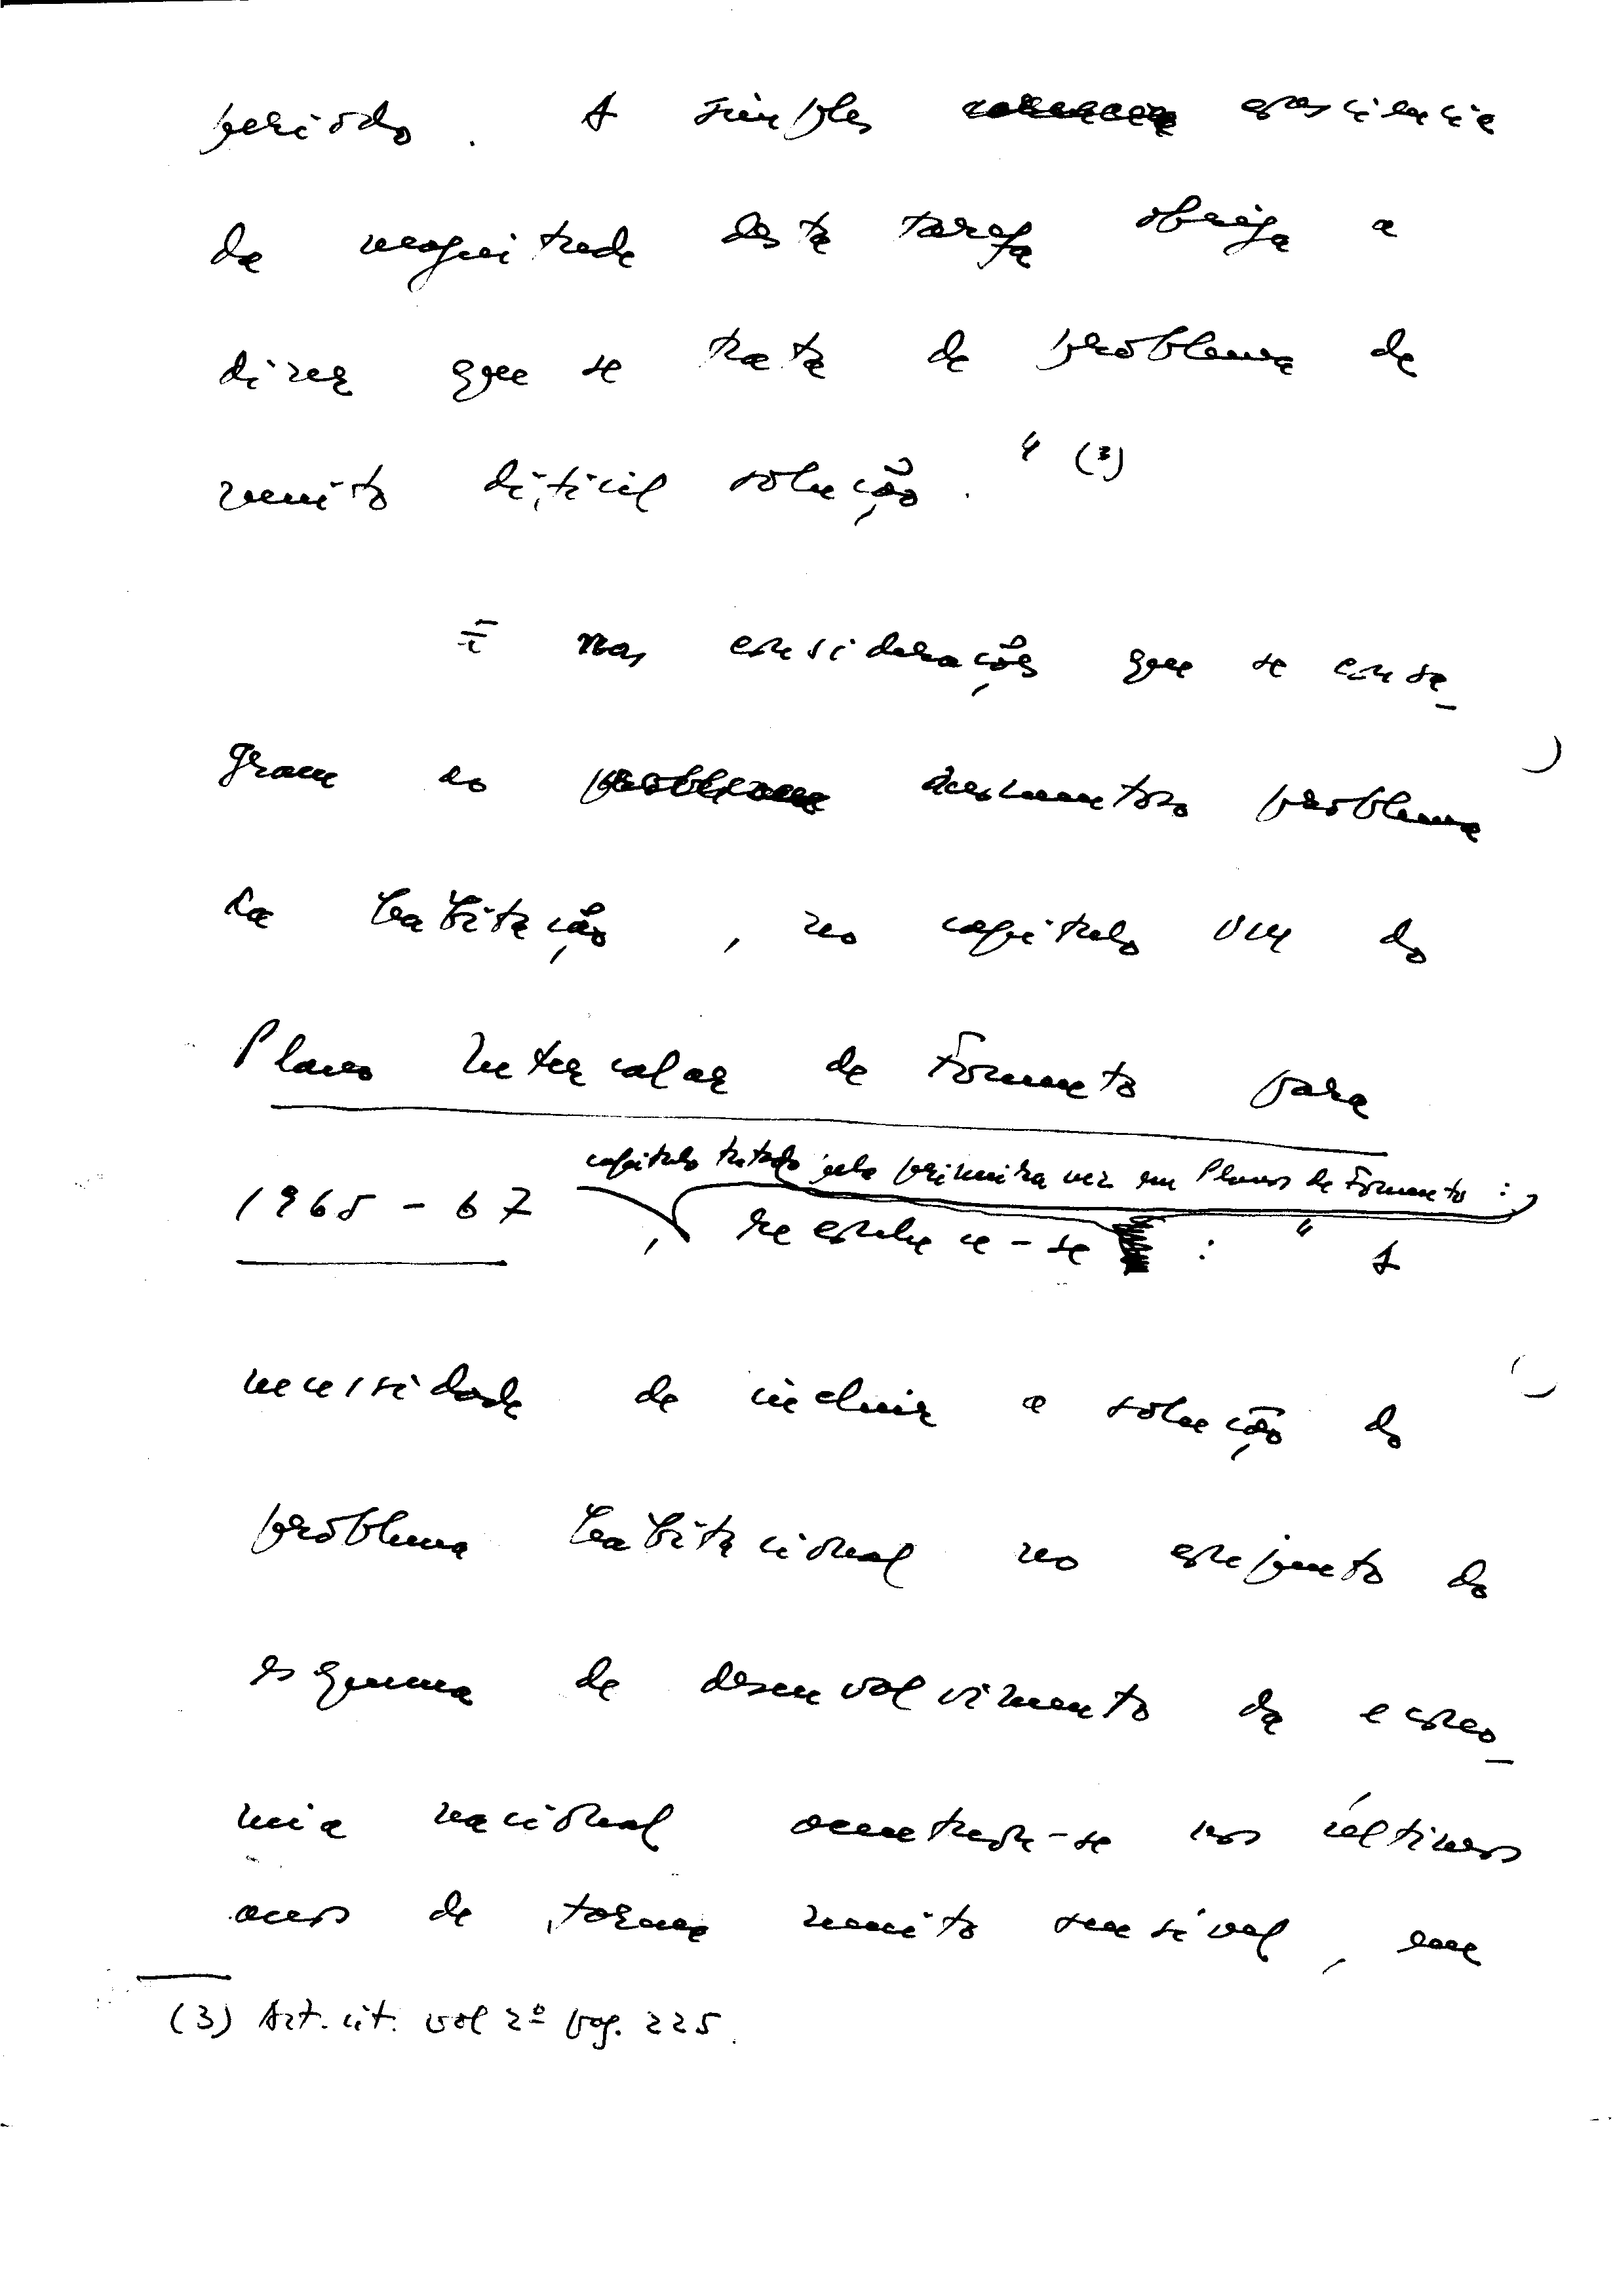 periodo. A simples consciencia
da magnitude desta tarefa obriga a
dizer que se trata de problema de
muito dificil solução." (3)
É nas considerações que se consa-
gram ao problema
da habitação, no capitulo VIII do
Plano Intercalar de Fomento para
capitulo tratado pela primeira vez em Planos de Fomento:
1965-67, reconhece-se: " A
necessidade de incluir a solução do
problema habitacional no conjunto do
esquema de desenvolvimento da econo-
mia nacional acentuou-se nos últimos
anos de forma muito sensivel, em
(3) Art. cit. vol 2º pag. 225.